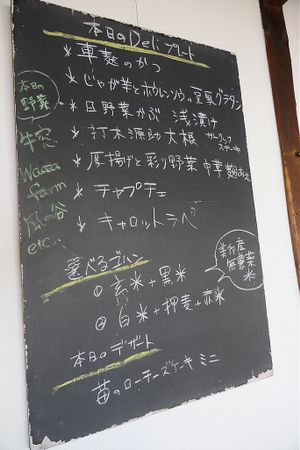 本日のDeliプレート
* 車麩のかつ
* じゃが芋とホウレンソウの豆乳グラタン
* 日野菜かぶ 浅漬け
* 打木源助大根 ガーリックステーキ
* 厚揚げと彩り野菜 中華麹あえ
* チャプチェ
* キャロットラペ
本日の野菜
Wacca
Farm
風の谷
etc..
選べるゴハン
① 玄米+黒米
② 白米+押麦+赤米
美作産
無農薬
米
本日のデザート
苺のローチーズケーキ ミニ